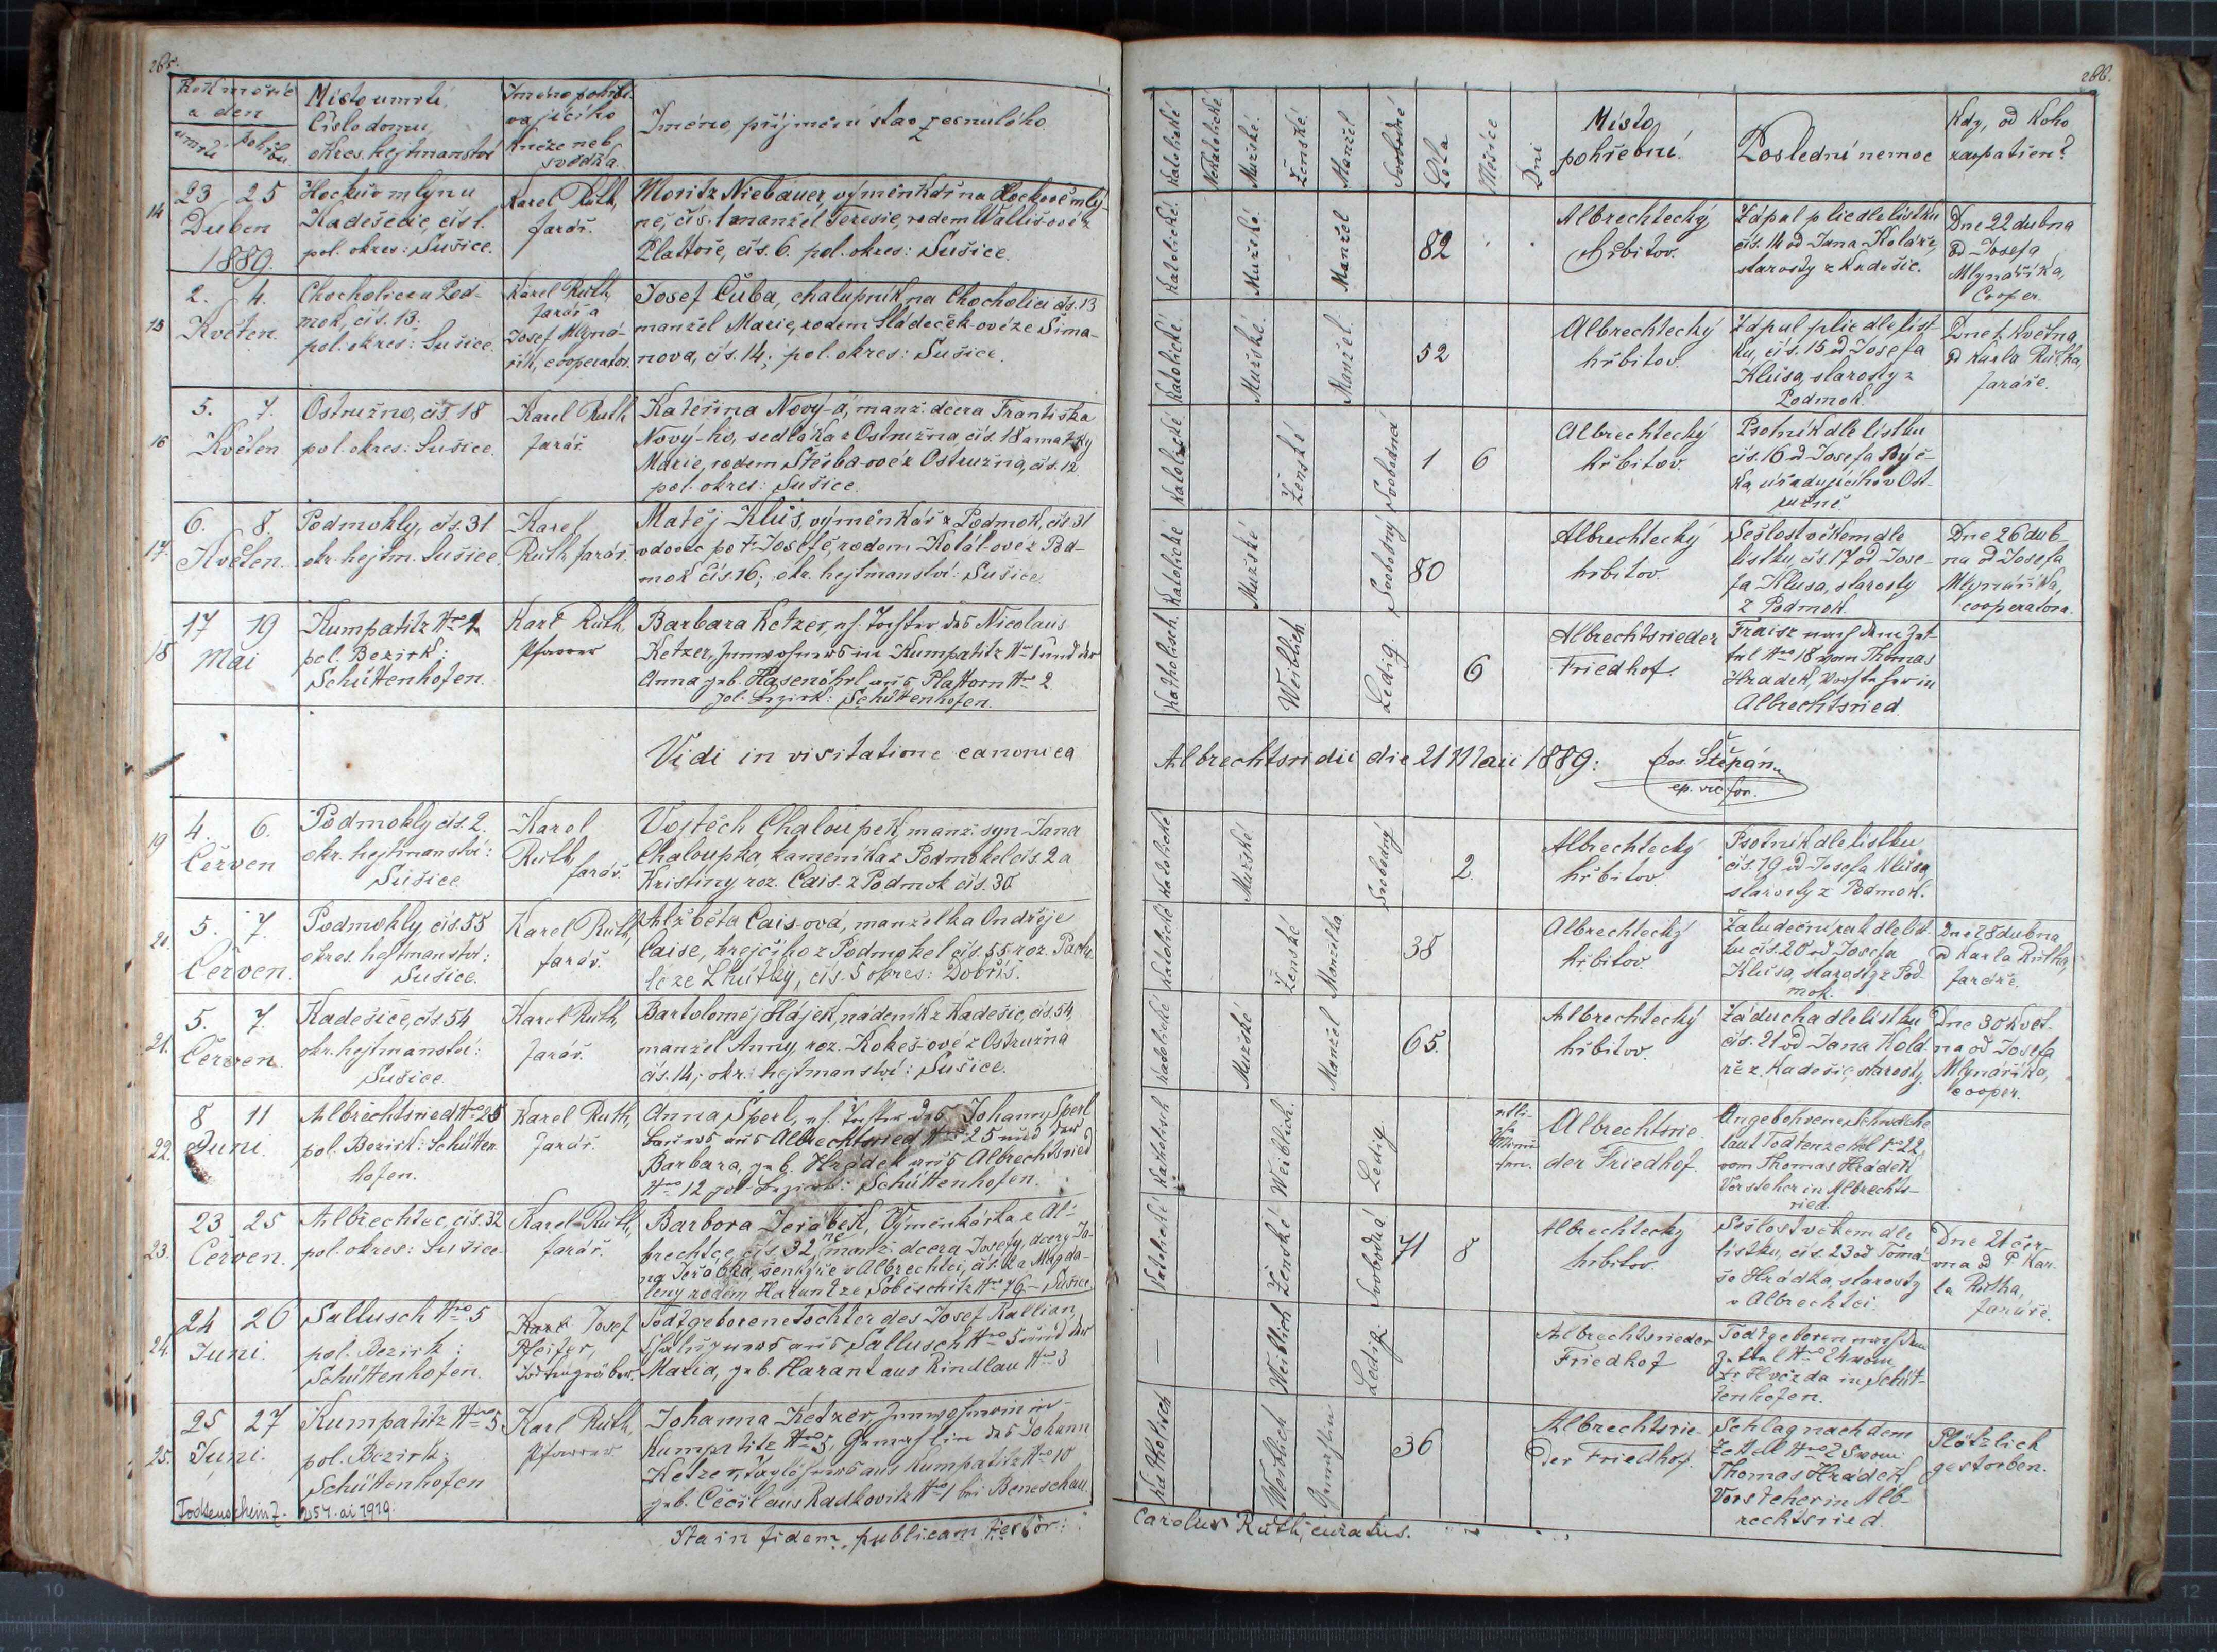 265.
Rok měsíc
a den
úmrtí
pohřbu
Místo úmrtí,
Číslo domu,
okres. hejtmanství
Jméno pohřb-
ovajícího
Kněze neb
svědka.
Jméno, příjmení stav zesnulého
14
23 25
Duben
1889.
Hockův mlýnu
Kadešicíc, čís 1.
pol. okres: Sušice.
Karel Rüth,
farář.
Moritz Niebauer, výměnkář na Hockově mlý-
ně, čís. 1 manžel Terezie, rodem Wallišové z
Plattoře, čís. 6. pol. okres: Sušice.
15
2. 4.
Květen.
Chocholice u Pod-
mok, čís. 13;
pol. okres: Sušice.
Karel Rüth,
farář a
Josef Mlyná-
řík, cooperator.
Josef Čuba, chalupník na Chocholici čís. 13
manžel Marie, rodem Sládeček-ové ze Sima-
nova, čís. 14; pol. okres: Sušice.
16
5. 7.
Květen
Ostružno, čís 18
pol. okres: Sušice.
Karel Rüth
farář.
Kateřina Nový-á, manž. dcera Františka
Nový-ho, sedláka z Ostružna, čís. 18 a matky
Marie, rodem Stěiba-ové z Ostružna, čís. 12
pol. okres: Sušice.
17.
6. 8.
Květen.
Podmokly, čís. 31
okr. hejtm. Sušice.
Karel
Rüth farář.
Matěj Kluś, výměnkář z Podmok, čís 31
vdovec po † Josefě, rodem Kolář-ové z Pod-
mok čís. 16; okr. hejtmanství: Sušice.
18
17 19
Mai
Kumpatitz Nro 1
pol. Bezirk:
Schüttenhofen.
Karl Rüth,
Pfarrer
Barbara Ketzer, eh. Tochter des Nicolaus
Ketzer, Innwohners in Kumpatitz Nro 1 und der
Anna geb. Hasenöhrl aus Plattorn Nro 2.
pol. Bezirk: Schüttenhofen.
Vidi in visitatione canonica
19
4. 6.
Červen
Podmokly čís. 2.
okr. hejtmanství:
Sušice.
Karel
Rüth
farář.
Vojtěch Chaloupek, manž. syn Jana
Chaloupka, kameníka z Podmokel čís. 2 a
Kristiny roz. Cais. z Podmok čís. 30
20.
5. 7.
Červen.
Podmokly, čís. 55
okres. hejtmanství:
Sušice.
Karel Rüth,
farář.
Alžběta Cais-ová, manželka Ondřeje
Caise, krejčího z Podmokel čís. 55 roz. Pachr-
le ze Lhútky, čís. 5 okres: Dobříš.
21.
5. 7.
Červen.
Kadešice, čís 54
okr. hejtmanství:
Sušice.
Karel Rüth,
farář.
Bartoloměj Hájek, nádeník z Kadešic, čís. 54,
manžel Anny, roz. Kokeš-ové z Ostružna
čís. 14; okr. hejtmanství: Sušice.
22.
8 11
Juni.
Albrechtsried Nro 25
pol. Bezirk: Schütten-
hofen.
Karel Rüth,
farář.
Anna Sperl, eh. Tochter des Johann Sperl
Bauers aus Albrechtsried Nro 25 und der
Barbara, geb. Hrádek aus Albrechtsried
Nro 12 pol. Bezirk: Schüttenhofen.
23.
23 25
Červen.
Albrechtec, čís. 32
pol. okres: Sušice.
Karel Rüth,
farář.
Barbora Jeřábek, Výměnkářka z Al-
brechtce, čís. 32, nemanž. dcera Josefy, dcery Ja-
na Jeřábka, šenkýře v Albrechtci, čís. a Magda-
leny rodem Harant ze Soběschitz Nro 76 – Sušice.
24.
24 26
Juni.
Sallusch Nro 5
pol. Bezirk:
Schüttenhofen.
Karl Josef
Pfeifer,
Todtengräber.
Todtgeborene Tochter des Josef Rallian,
aus Sallusch Nro 5 und der
Maria, geb. Harant aus Rindlau Nro 3
25.
25 27
Juni.
Kumpatitz Nro 5
pol. Bezirk:
Schüttenhofen
Karl Rüth,
Pfarrer
Johanna Ketzer, Innwohnerin in
Kumpatitz Nro 5, Gemahlin des Johann
Ketzer, Taglöhners aus Kumpatitz Nro 10
geb. Cečil aus Radkovitz Nro 1 bei Beneschau.
Todtenschein Z. 254. ai 1919.
Ita in fidem publicam testor:
266.
Katolické
Nekatolické
Mužské.
Ženské.
Manžel
Svobodné
Léta
Měsíce
Dni
Místo
pohřební.
Poslední nemoc
Kdy, od koho
zaopatřen?
Katolické.
Mužské.
Manžel
82
Albrechtecký
hřbitov.
Zápal plic dle lístku
čís. 14 od Jana Koláře,
starosty z Kadešic.
Dne 22 dubna
od Josefa
Mlynaříka,
Cooper.
Katolické.
Mužské.
Manžel.
52
Albrechtecký
hřbitov.
Zápal plic dle líst-
ku, čís. 15 od Josefa
Kluśa, starosty z
Podmok.
Dne 1. Května,
od Karla Rütha,
faráře.
Katolické
Ženské
Svobodná
1 6
Albrechtecký
hřbitov
Psotník dle lístku
čís. 16 od Josefa Býč-
ka, úřadujícího v Ost-
ružně.
Katolické
Mužské
Svobodný
80
Albrechtecký
hřbitov.
Sešlost věkem dle
lístku, čís. 17 od Jose-
fa Klusa, starosty
z Podmok.
Dne 26 dub-
na od Josefa
Mlynáříka,
cooperatora.
Katholisch.
Weiblich.
Ledig.
6
Albrechtsrieder
Friedhof.
Fraisz nach dem Zet-
tel Nro 18 vom Thomas
Hradek, Vorsteher in
Albrechtsried.
Albrechtsridii die 21 Maii 1889: Jos. Štěpán
ep. vic for.
Katolické
Mužské
Svobodný
2.
Albrechtecký
hřbitov.
Psotník dle lístku
čís. 19 od Josefa Klúsa,
starosty z Podmok.
Katolické
Ženské
Manželka
38
Albrechtecký
hřbitov.
Žaludeční rak dle líst-
ku čís. 20 od Josefa
Klúsa, starosty z Pod-
mok.
Dne 28 dubna
od Karla Rütha,
faráře.
Katolické
Mužské
Manžel
65.
Albrechtecký
hřbitov.
Záducha dle lístku
čís. 21 od Jana Kolá-
ře z Kadešic, starosty.
Dne 30 Květ-
na od Josefa
Mlynáříka,
cooper.
Katholisch
Weiblich.
Ledig
Albrechtsrie-
der Friedhof.
Angebohrene Schwäche
laut Todtenzettel Nro 22,
vom Thomas Hrádek
Vorsteher in Albrechts-
ried.
Katolické
Ženské
Svobodná
71 8
Albrechtecký
hřbitov.
Sešlost věkem dle
lístku, čís. 23 od Tomá-
še Hrádka, starosty
v Albrechtci.
Dne 21 čer-
vna od P. Kar-
la Rütha,
faráře.
—
Weiblich
Ledig.
Albrechtsrieder
Friedhof
Todtgeboren nach dem
Zettel Nro 24 vom
Dr Hvězda in Schüt-
tenhofen.
Katholisch
Weiblich
Gemahlin
36
Albrechtsrie-
der Friedhof.
Schlag nach dem
Zettel Nro 25 vom
Thomas Hrádek
Vorsteher in Alb-
rechtsried.
Plötzlich
gestorben.
Carolus Rüth, curatus.